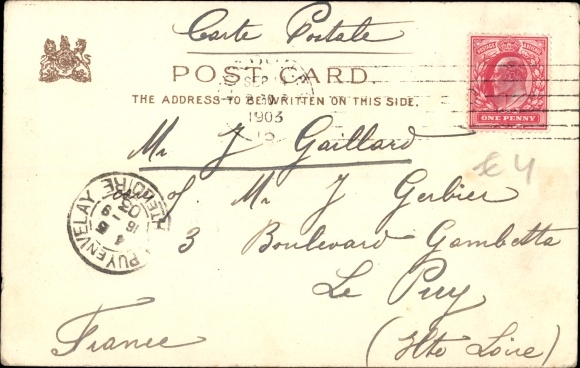 Carte Postale
POST CARD.
THE ADDRESS TO BE WRITTEN ON THIS SIDE.
SEP
1903
POSTAGE REVENUE
ONE PENNY
Mr J Gaillard
£4
care of Mr J Gerbier
3 Boulevard Gambetta
Le Puy
(Hte Loire)
France
PUY EN VELAY
Hte LOIRE
5-9
03